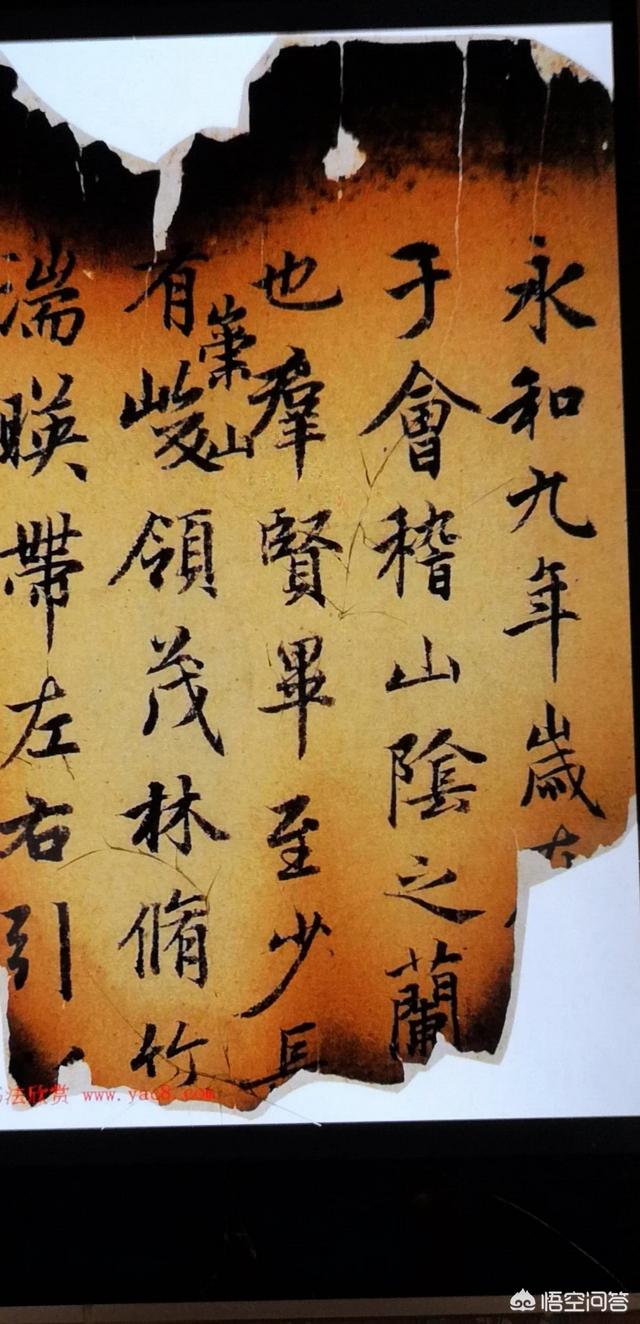 永和九年歲在
于會稽山陰之蘭
也羣賢畢至少長
崇山
有峻領茂林脩竹
湍暎帶左右引
书法欣赏 www.yac8.com
悟空问答